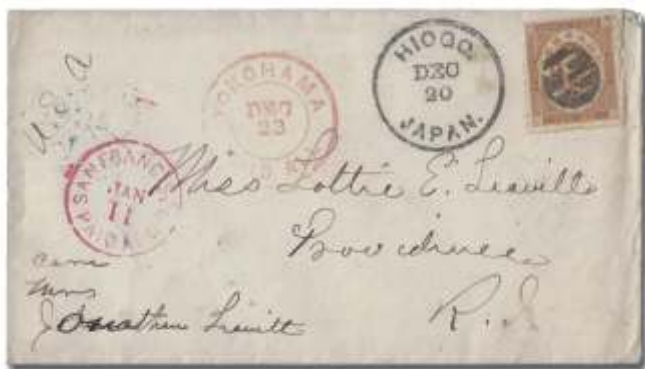 U.S.A
HIOGO.
DEC
20
JAPAN.
YOKOHAMA
DEC
23
JAN
11
Miss Lottie E. Leavitt
Providence
R. I.
Care
Mrs
Jonathan Leavitt